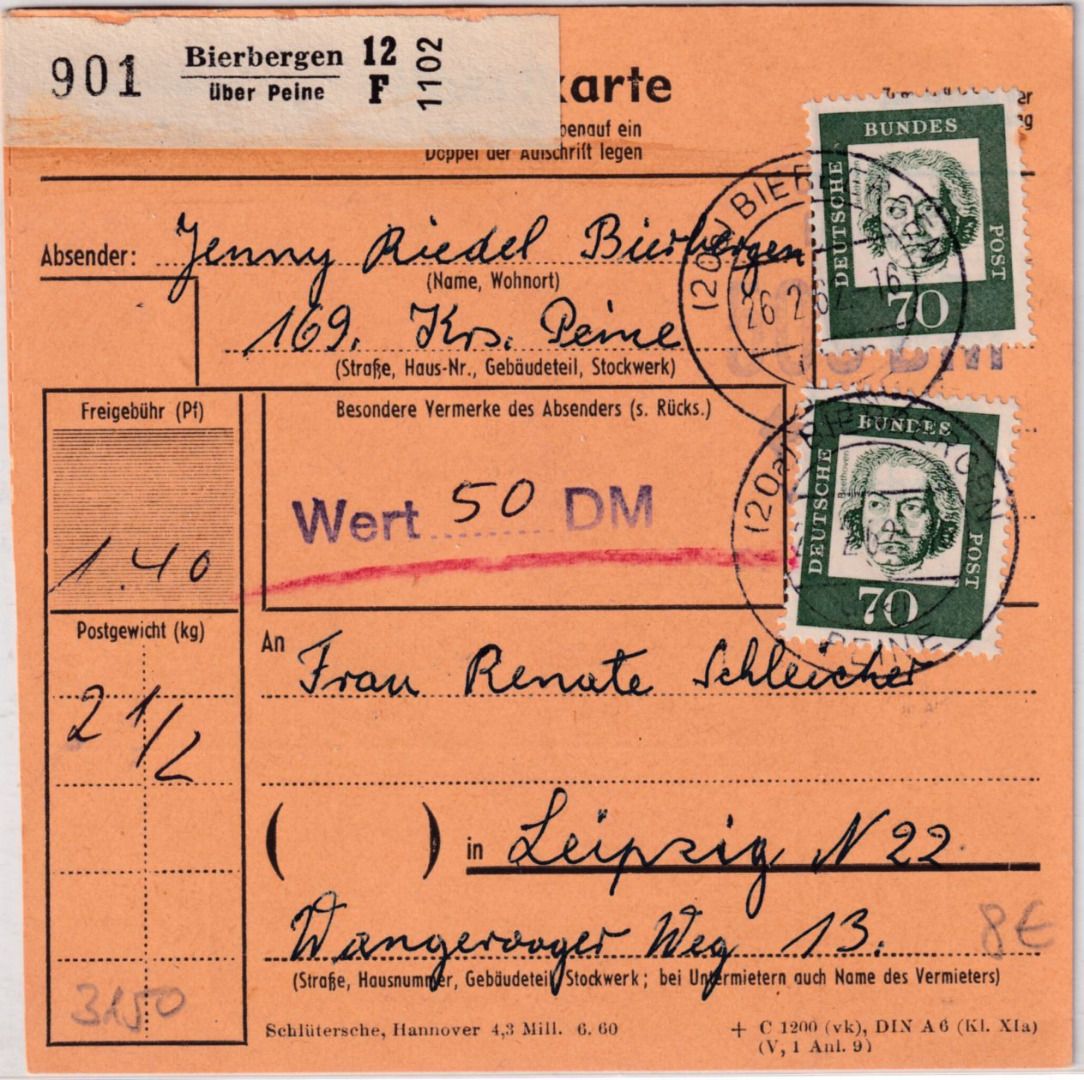 901 Bierbergen 12
über Peine F 1102
karte
benauf ein
Doppel der Aufschrift legen
BUNDES
DEUTSCHE
POST
70
(20a) BIERBERGEN
26.2.62.-16
Absender: Jenny Riedel Bierbergen
(Name, Wohnort)
169. Krs. Peine
(Straße, Haus-Nr., Gebäudeteil, Stockwerk)
DM
Freigebühr (Pf)
1.40
Besondere Vermerke des Absenders (s. Rücks.)
Wert 50 DM
BUNDES
DEUTSCHE
Beethoven
POST
70
(20a) BIERBERGEN
PEINE
Postgewicht (kg)
2 1/2
An Frau Renate Schleicher
( ) in Leipzig N 22
Wangerooger Weg 13.
8€
(Straße, Hausnummer, Gebäudeteil, Stockwerk; bei Untermietern auch Name des Vermieters)
3150
Schlütersche, Hannover 4,3 Mill. 6. 60
+ C 1200 (vk), DIN A 6 (Kl. XIa)
(V, 1 Anl. 9)